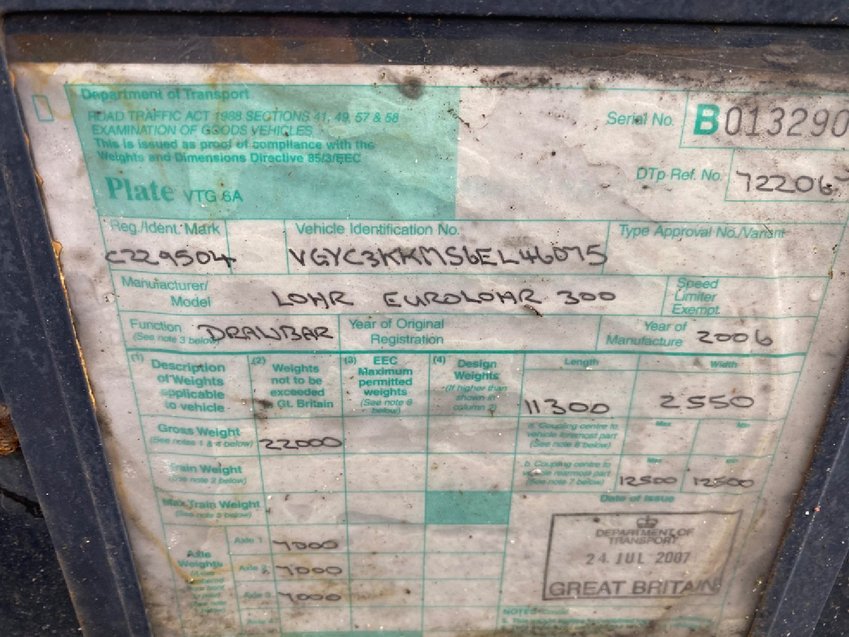 Department of Transport
ROAD TRAFFIC ACT 1988 SECTIONS 41, 49, 57 & 58
EXAMINATION OF GOODS VEHICLES
This is issued as proof of compliance with the
Weights and Dimensions Directive 85/3/EEC
Plate VTG 6A
Serial No. B013290
DTp Ref. No. 72206
Reg./Ident. Mark
C229504
Vehicle Identification No.
VGYC3KKMS6EL46075
Type Approval No./Variant
Manufacturer/
Model
LOHR EUROLOHR 300
Speed
Limiter
Exempt
Function DRAWBAR
(See note 3 below)
Year of Original
Registration
Year of
Manufacture 2006
(1) Description
of Weights
applicable
to vehicle
(2) Weights
not to be
exceeded
Gt. Britain
(3) EEC
Maximum
permitted
weights
(See note 8
below)
(4) Design
Weights
(If higher than
shown in
column 2)
Length
11300
Width
2550
Gross Weight 22000
(See notes 1 & 4 below)
a. Coupling centre to
vehicle foremost part
(See note 6 below)
Max Min
Train Weight
(See note 2 below)
b. Coupling centre to
vehicle rearmost part
(See note 7 below)
12500 12500
Max Train Weight
(See note 5 below)
Date of Issue
DEPARTMENT OF
TRANSPORT
24 JUL 2007
GREAT BRITAIN
Axle
Weights
Axle 1 7000
Axle 2 7000
Axle 3 7000
NOTES